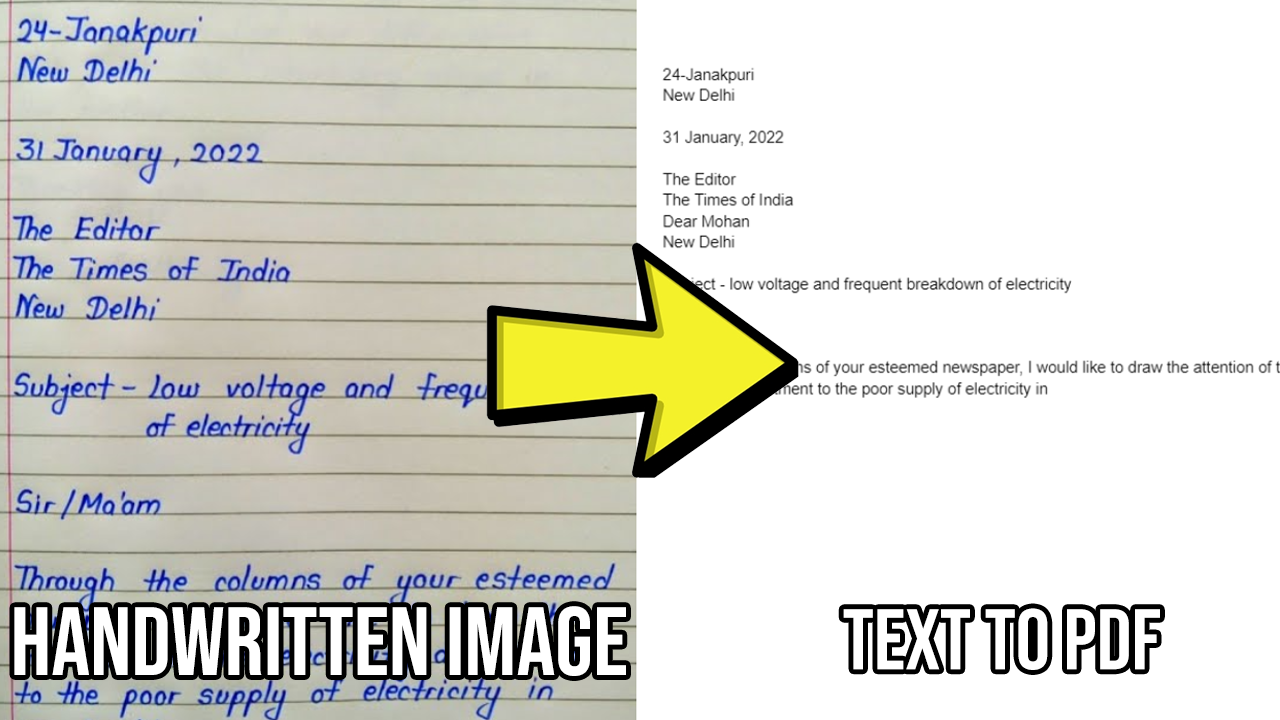 24-Janakpuri
New Delhi
31 January, 2022
The Editor
The Times of India
New Delhi
Subject - low voltage and frequ
of electricity
Sir/Ma'am
Through the columns of your esteemed
to the poor supply of electricity in
HANDWRITTEN IMAGE
24-Janakpuri
New Delhi
31 January, 2022
The Editor
The Times of India
Dear Mohan
New Delhi
ject - low voltage and frequent breakdown of electricity
ns of your esteemed newspaper, I would like to draw the attention of t
ment to the poor supply of electricity in
TEXT TO PDF